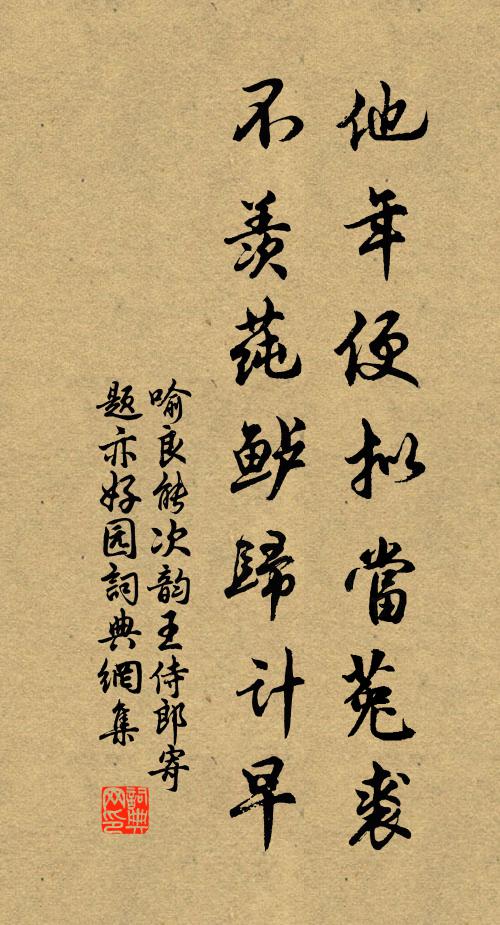 他年便拟當菟裘
不羨莼鲈歸计早
喻良能次韵王侍郎寄
题亦好园詞典網集
詞典网印